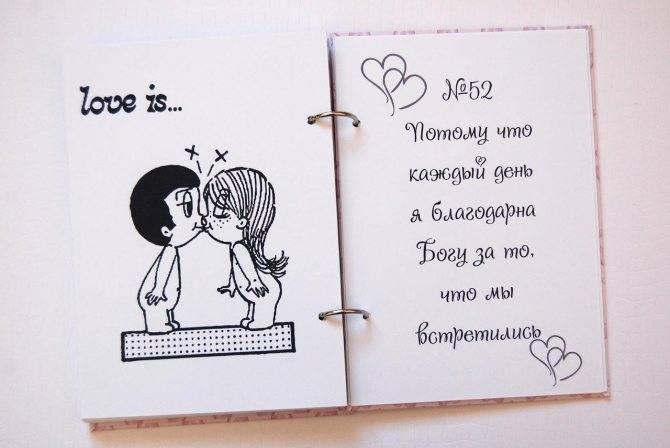 love is...
№52
Потому что
каждый день
я благодарна
Богу за то,
что мы
встретились